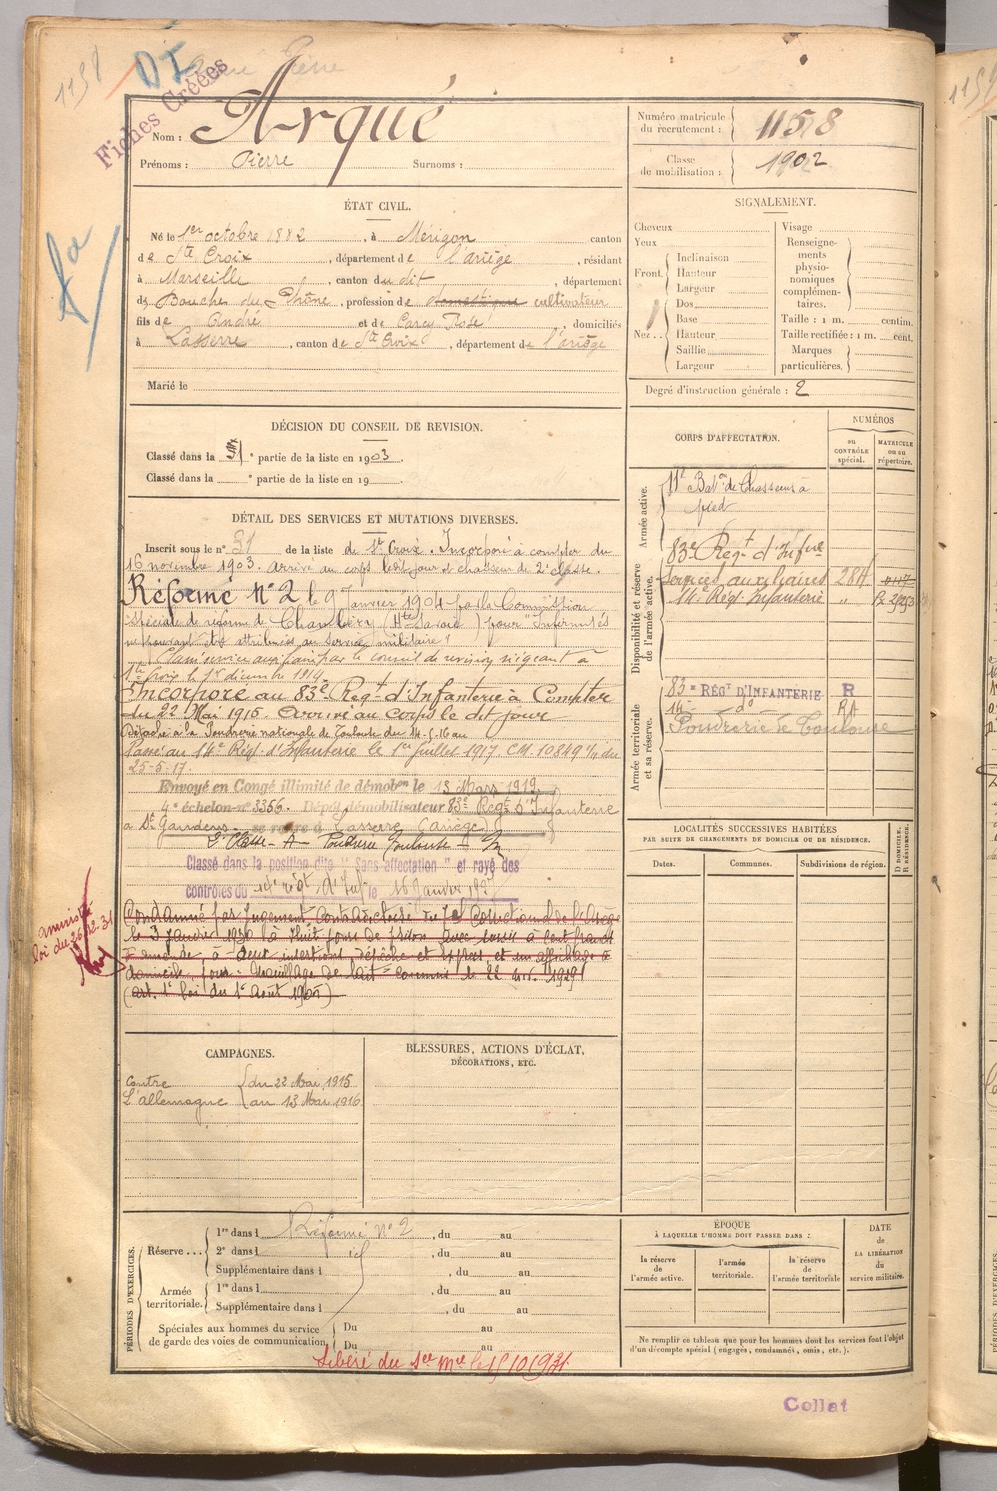 1158
DI
Fiches Créées
Nom : Arqué
Prénoms : Pierre Surnoms :
Numéro matricule du recrutement : 1158
Classe de mobilisation : 1902
ÉTAT CIVIL.
Né le 1er octobre 1882, à Mérigon canton
de Ste Croix, département de l'ariège, résidant
à Marseille, canton du dit, département
des Bouches du Rhône, profession de domestique cultivateur
fils de André et de Carcy Rose, domiciliés
à Lasserre, canton de Ste Croix, département de l'ariège
Marié le
SIGNALEMENT.
Cheveux
Yeux
Front. Inclinaison
Hauteur
Largeur
Nez.. Dos
Base
Hauteur
Saillie
Largeur
Visage
Renseignements physionomiques complémentaires.
Taille : 1 m. centim.
Taille rectifiée : 1 m. cent.
Marques particulières.
Degré d'instruction générale : 2
DÉCISION DU CONSEIL DE REVISION.
Classé dans la partie de la liste en 1903.
Classé dans la e partie de la liste en 19
DÉTAIL DES SERVICES ET MUTATIONS DIVERSES.
Inscrit sous le n° 31 de la liste de Ste Croix. Incorporé à compter du
16 novembre 1903. Arrivé au corps ledit jour et chasseur de 2e classe.
Réformé N° 2 le 9 Janvier 1904 par la Commission
spéciale de réforme de Chambéry (Hte Savoie) pour "Infirmités
ne pouvant être attribuées au service militaire"
Classé service auxiliaire par le conseil de revision siégeant à
Ste Croix le 1er décembre 1914
Incorporé au 83e Régt d'Infanterie à Compter
du 22 Mai 1915. Arrivé au Corps le dit jour
Détaché à la Poudrerie nationale de Toulouse du 14-5-16 au
Passé au 14e Régt d'Infanterie le 1er Juillet 1917. CM 10849 1/4 du
25-5-17.
Envoyé en Congé illimité de démobon le 13 Mars 1919
4e échelon n° 3356. Dépôt démobilisateur 83e Régt d'Infanterie
à St Gaudens se retire à Lasserre (Ariège)
Poudrerie Toulouse
Classé dans la position dite "Sans affectation" et rayé des
contrôles du 14e régt d'Inf le 16 Janvier 192
Condamné par Jugement Contradictoire du Tal Correctionnel de l'Ariège
le 3 Janvier 1930 à Huit jours de prison avec sursis à cent francs
d'amende, à deux insertions, dépêche et express, et un affichage à
domicile, pour "Mouillage de lait" commis le 22 1929
(art. 1er loi du 1er Août 1905)
amnistié
loi du 26-12-31
CORPS D'AFFECTATION.
NUMÉROS
au CONTRÔLE spécial.
MATRICULE ou au répertoire.
Armée active.
11e Baton de Chasseurs à
pied
Disponibilité et réserve de l'armée active.
83e Régt d'Infrie
services auxiliaires 28A
14e Régt Infanterie "
Armée territoriale et sa réserve.
83e RÉGT D'INFANTERIE R
14 - do - RA
Poudrerie de Toulouse
LOCALITÉS SUCCESSIVES HABITÉES
PAR SUITE DE CHANGEMENTS DE DOMICILE OU DE RÉSIDENCE.
Dates. Communes. Subdivisions de région.
D DOMICILE.
R RÉSIDENCE.
CAMPAGNES.
Contre
L'allemagne
du 22 Mai 1915
au 13 Mai 1916
BLESSURES, ACTIONS D'ÉCLAT,
DÉCORATIONS, ETC.
PÉRIODES D'EXERCICES.
Réserve... 1re dans l Réformé n° 2, du au
2e dans l id, du au
Supplémentaire dans l, du au
Armée territoriale. 1re dans l, du au
Supplémentaire dans l, du au
Spéciales aux hommes du service de garde des voies de communication. Du au
Du au
Libéré du Sce Mre le 15 10 1931
ÉPOQUE
À LAQUELLE L'HOMME DOIT PASSER DANS :
la réserve de l'armée active.
l'armée territoriale.
la réserve de l'armée territoriale
DATE de LA LIBÉRATION du service militaire.
Ne remplir ce tableau que pour les hommes dont les services font l'objet
d'un décompte spécial (engagés, condamnés, omis, etc.).
Collat